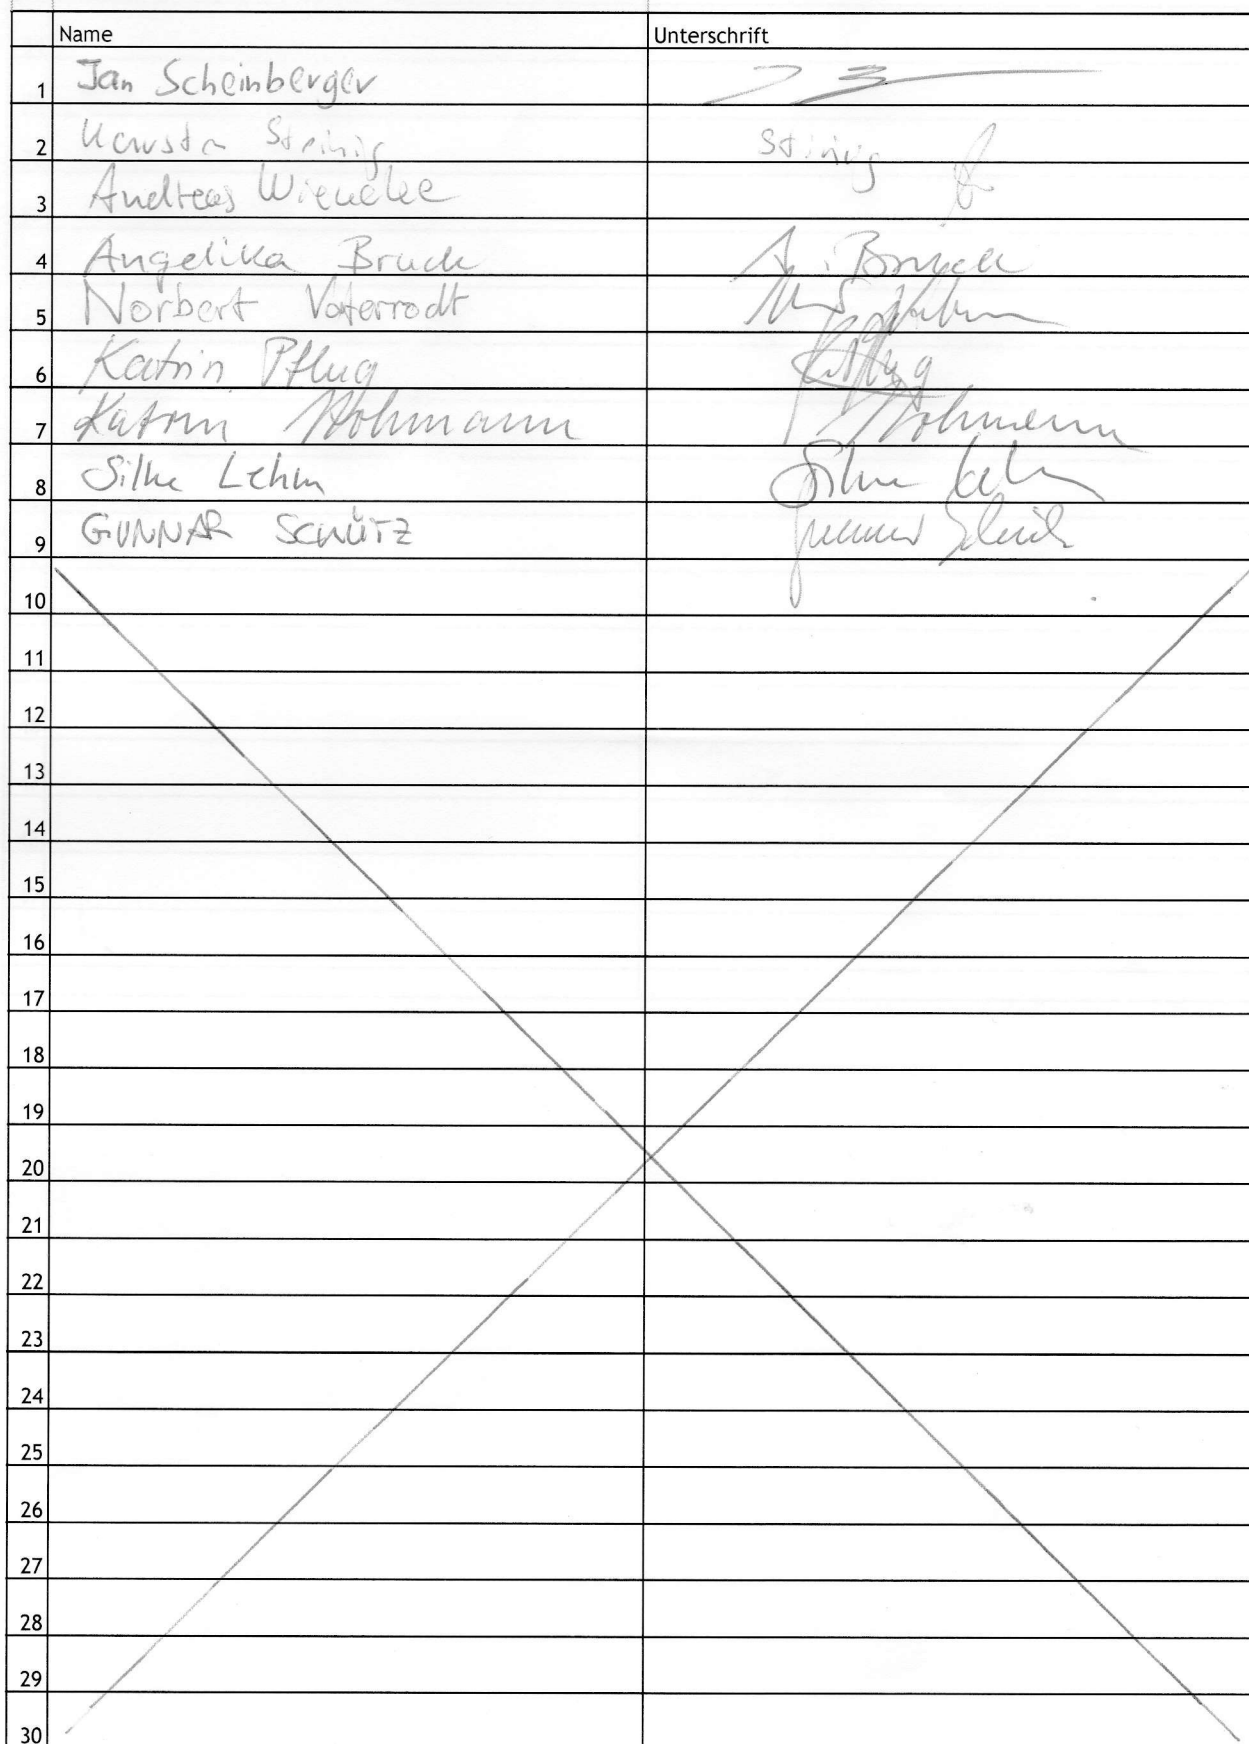 Name Unterschrift
1 Jan Scheinberger
2 Steinig
3 Andreas Wienecke
4 Angelika Bruck A. Bruck
5 Norbert Vaterrodt
6 Katrin Pflug Pflug
7 Katrin Hohmann Hohmann
8 Silke Lehm Silke Lehm
9 GUNNAR SCHÜTZ Gunnar Schütz
10
11
12
13
14
15
16
17
18
19
20
21
22
23
24
25
26
27
28
29
30